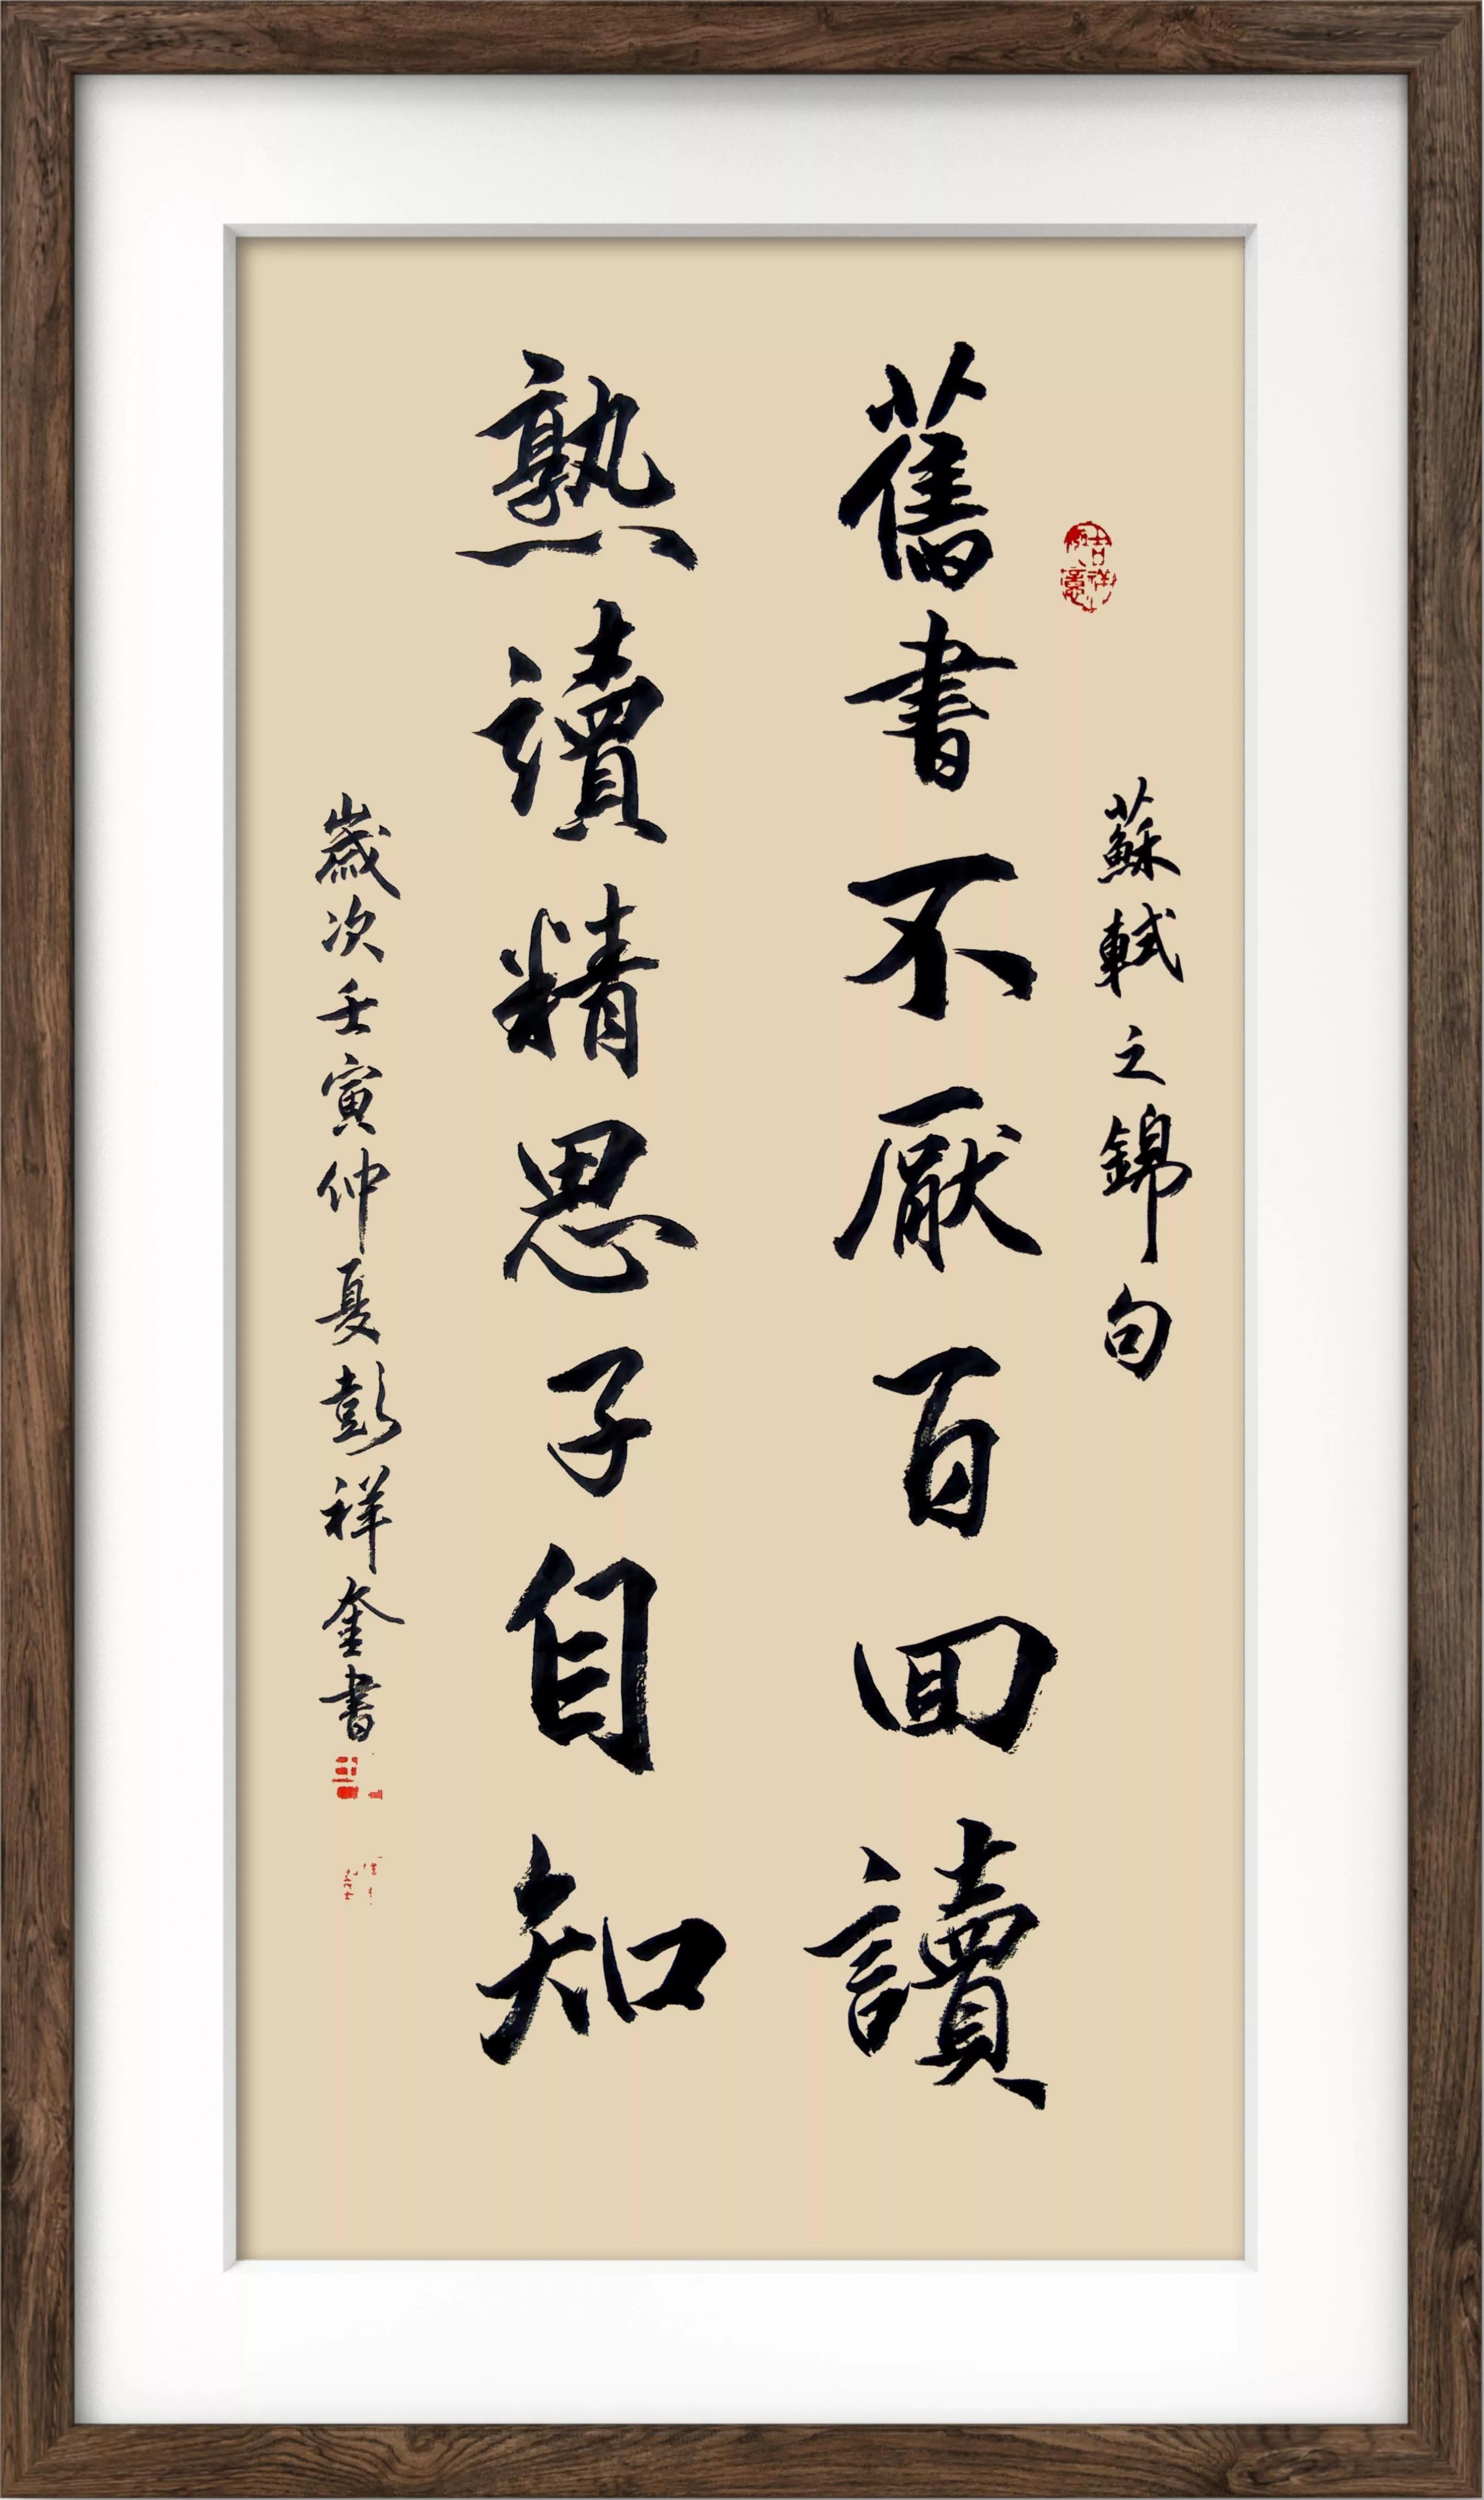 蘇軾之錦句
舊書不厭百回讀
熟讀精思子自知
歲次壬寅仲夏彭祥奎書